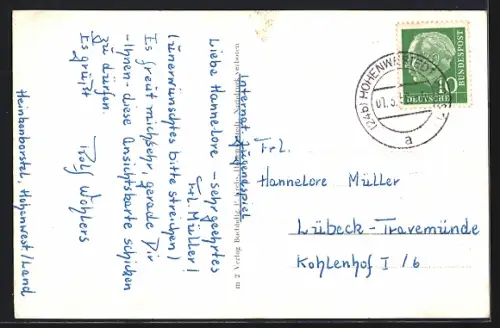 Internat. Jugendspiel
Liebe Hannelore - sehr geehrtes
Frl. Müller!
(unerwünschtes bitte streichen)
Es freut mich sehr, gerade Dir
-Ihnen- diese Ansichtskarte schicken
zu dürfen.
Es grüßt
Rolf Wohlers
Heinkenborstel, Hohenwest/Land
m 2 Verlag
verboten
DEUTSCHE BUNDESPOST
10
(24b) HOHENWESTEDT
a
Frl.
Hannelore Müller
Lübeck-Travemünde
Kohlenhof I/6